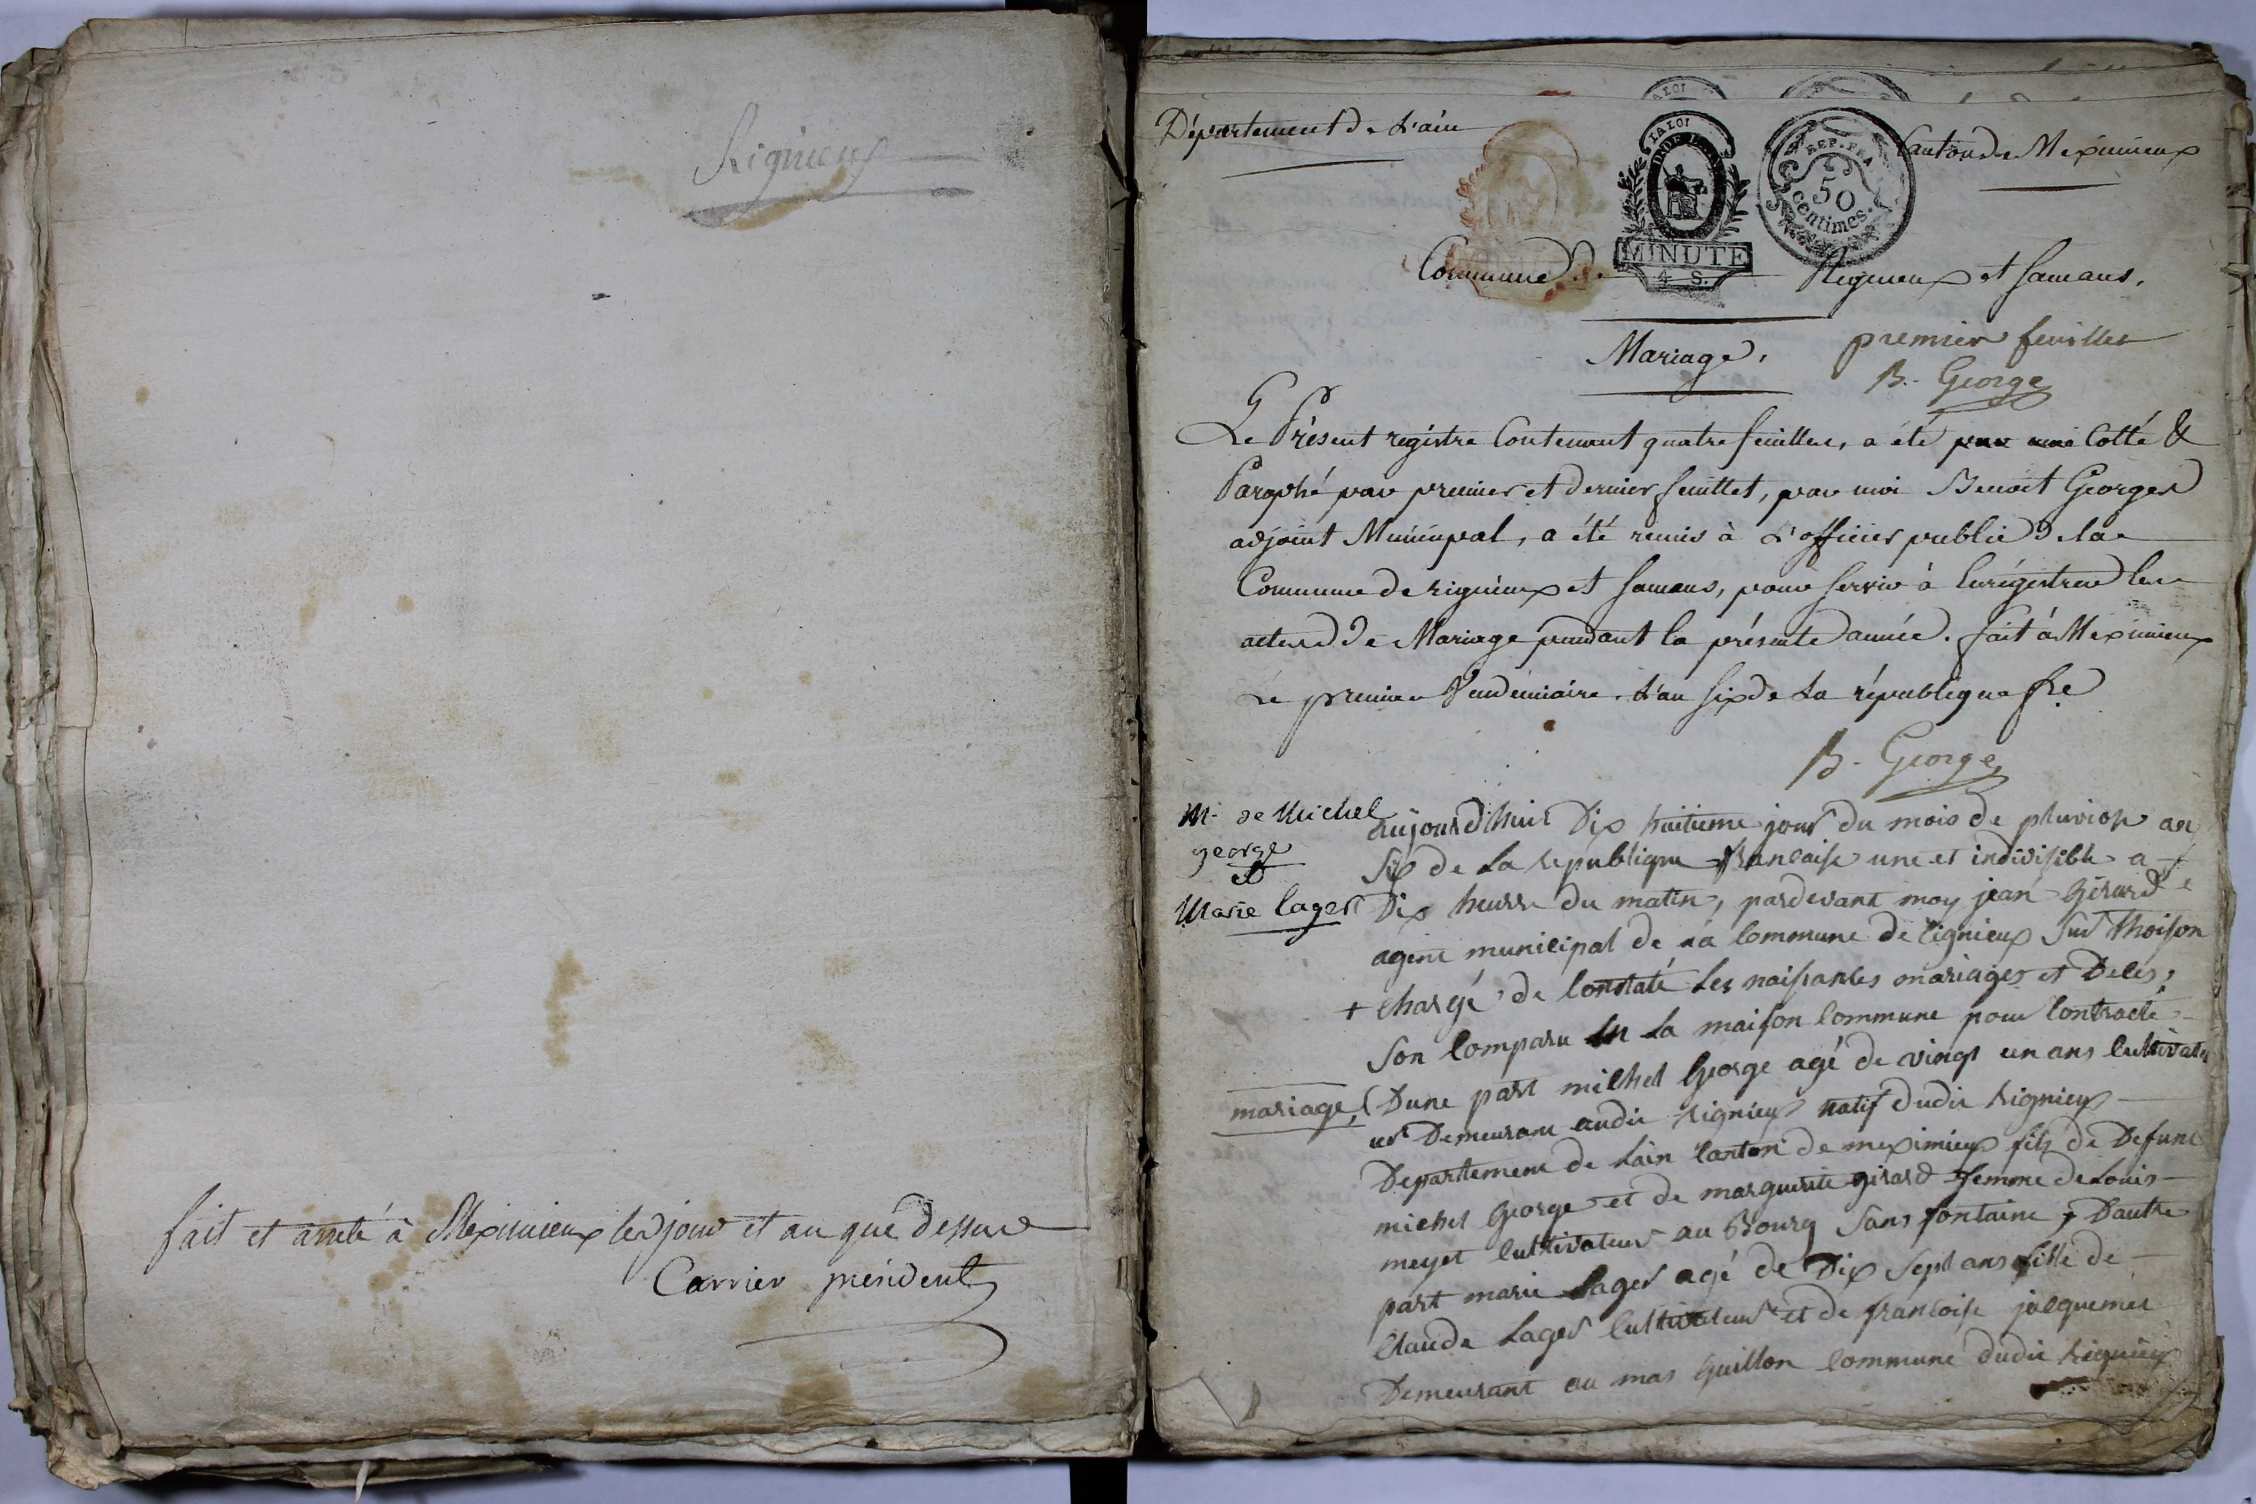 Rignieux
fait et arreté à Meximieux les jour et an que dessus
Carrier president
Département de L'ain
Canton de Meximieux
LA LOI
MINUTE
4 S.
REP. FRA
50
centimes.
Commune de Rigneux et Samans.
Mariage,
premier feuillet
B. George
Le Présent registre Contenant quatre feuilles, a été par moi Cotté &
Paraphé par premier et dernier feuillet, par moi Benoit Georges
adjoint Municipal, a été remis à L'officier public de la
Commune de rignieux et Samans, pour servir à Enrégistrer les
actes de Mariage pendant la présente année. fait à Meximieux
Le premier Vendémiaire. L'an six de La république fse
B. George
M. de Michel
george
&
Marie lager
aujourd'huis Dix huitieme jour du mois de pluviose an
Six de La republique francaise une et indivisible a
Dix heures du matin, pardevant moy jean Girard
agent municipal de La Commune de rignieux Sur Thoison
+ chargé de Constaté Les naissances mariages et Decès,
Son Comparu En La maison Commune pour Contracté
mariage, Dune part michel George agé de vingt un ans Cultivat
eur Demeurant audit Rignieux natif dudit Rignieux
Departement de Lain Canton de meximieux fils de Defunt
michel George et de marguerite girard femme de Louis
meyet Cultivateur au Bourg Sans fontaine, Dautre
part marie Lager agé de Dix Sept ans fille de
Claude Lager Cultivateur et de francoise jacquemet
Demeurant au mas Guillon Commune dudit Rignieux